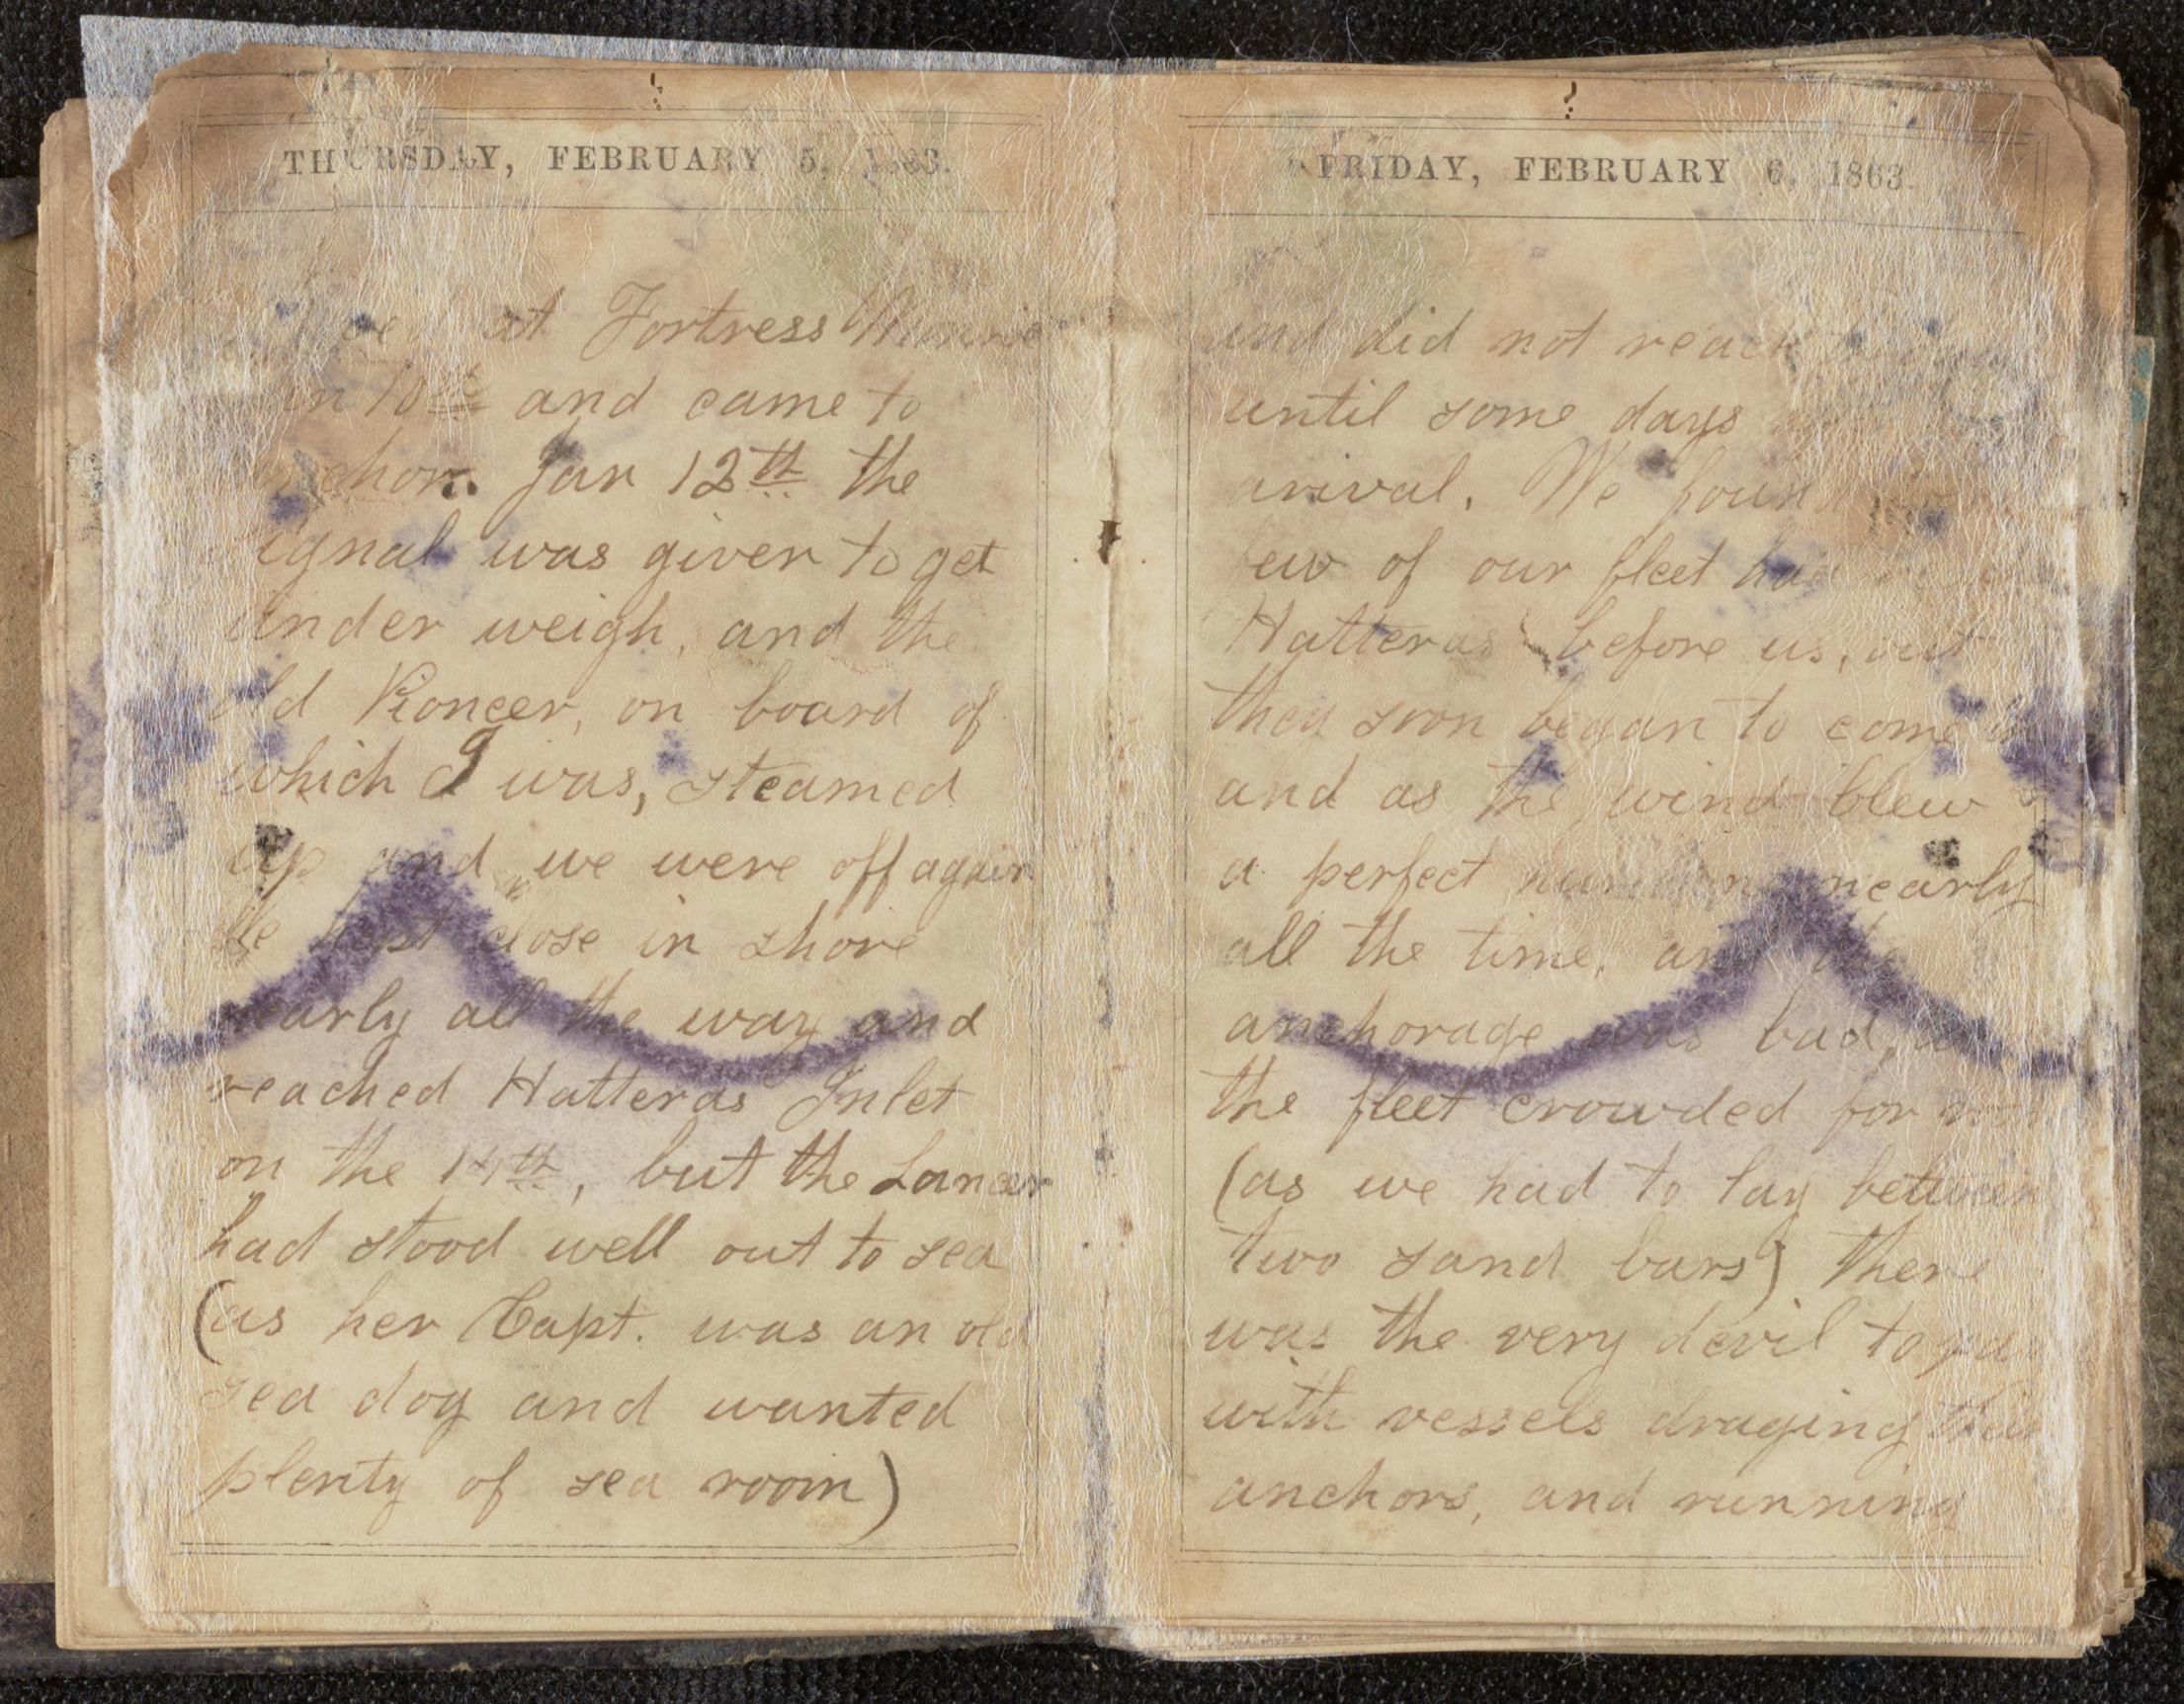 THURSDAY, FEBRUARY 5, 1863.
at Fortress Monroe
10th and came to
anchor. Jan 12th the
signal was given to get
under weigh, and the
old Pioneer, on board of
which I was, steamed
up and we were off again
We kept close in shore
nearly all the way and
reached Hatteras Inlet
on the 14th, but the Lancer
had stood well out to sea
(as her Capt. was an old
sea dog and wanted
plenty of sea room)
FRIDAY, FEBRUARY 6, 1863.
and did not reach
until some days
arival. We found
few of our fleet had
Hatteras before us, but
they soon began to come in
and as the wind blew
a perfect hurricane nearly
all the time, and the
anchorage was bad,
the fleet crowded for room
(as we had to lay between
two sand bars) there
was the very devil to pay
with vessels draging their
anchors, and running